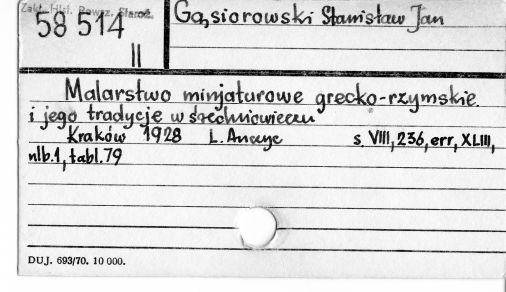 Zakł. Hist. Powsz. Staroż.
58 514
II
Gąsiorowski Stanisław Jan
Malarstwo minjaturowe grecko-rzymskie
i jego tradycje w średniowieczu
Kraków 1928 L. Anczyc s. VIII, 236, err, XLIII,
nlb. 1, tabl. 79
DUJ. 693/70. 10 000.